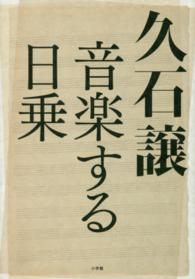 久石譲
音楽する
日乗
小学館